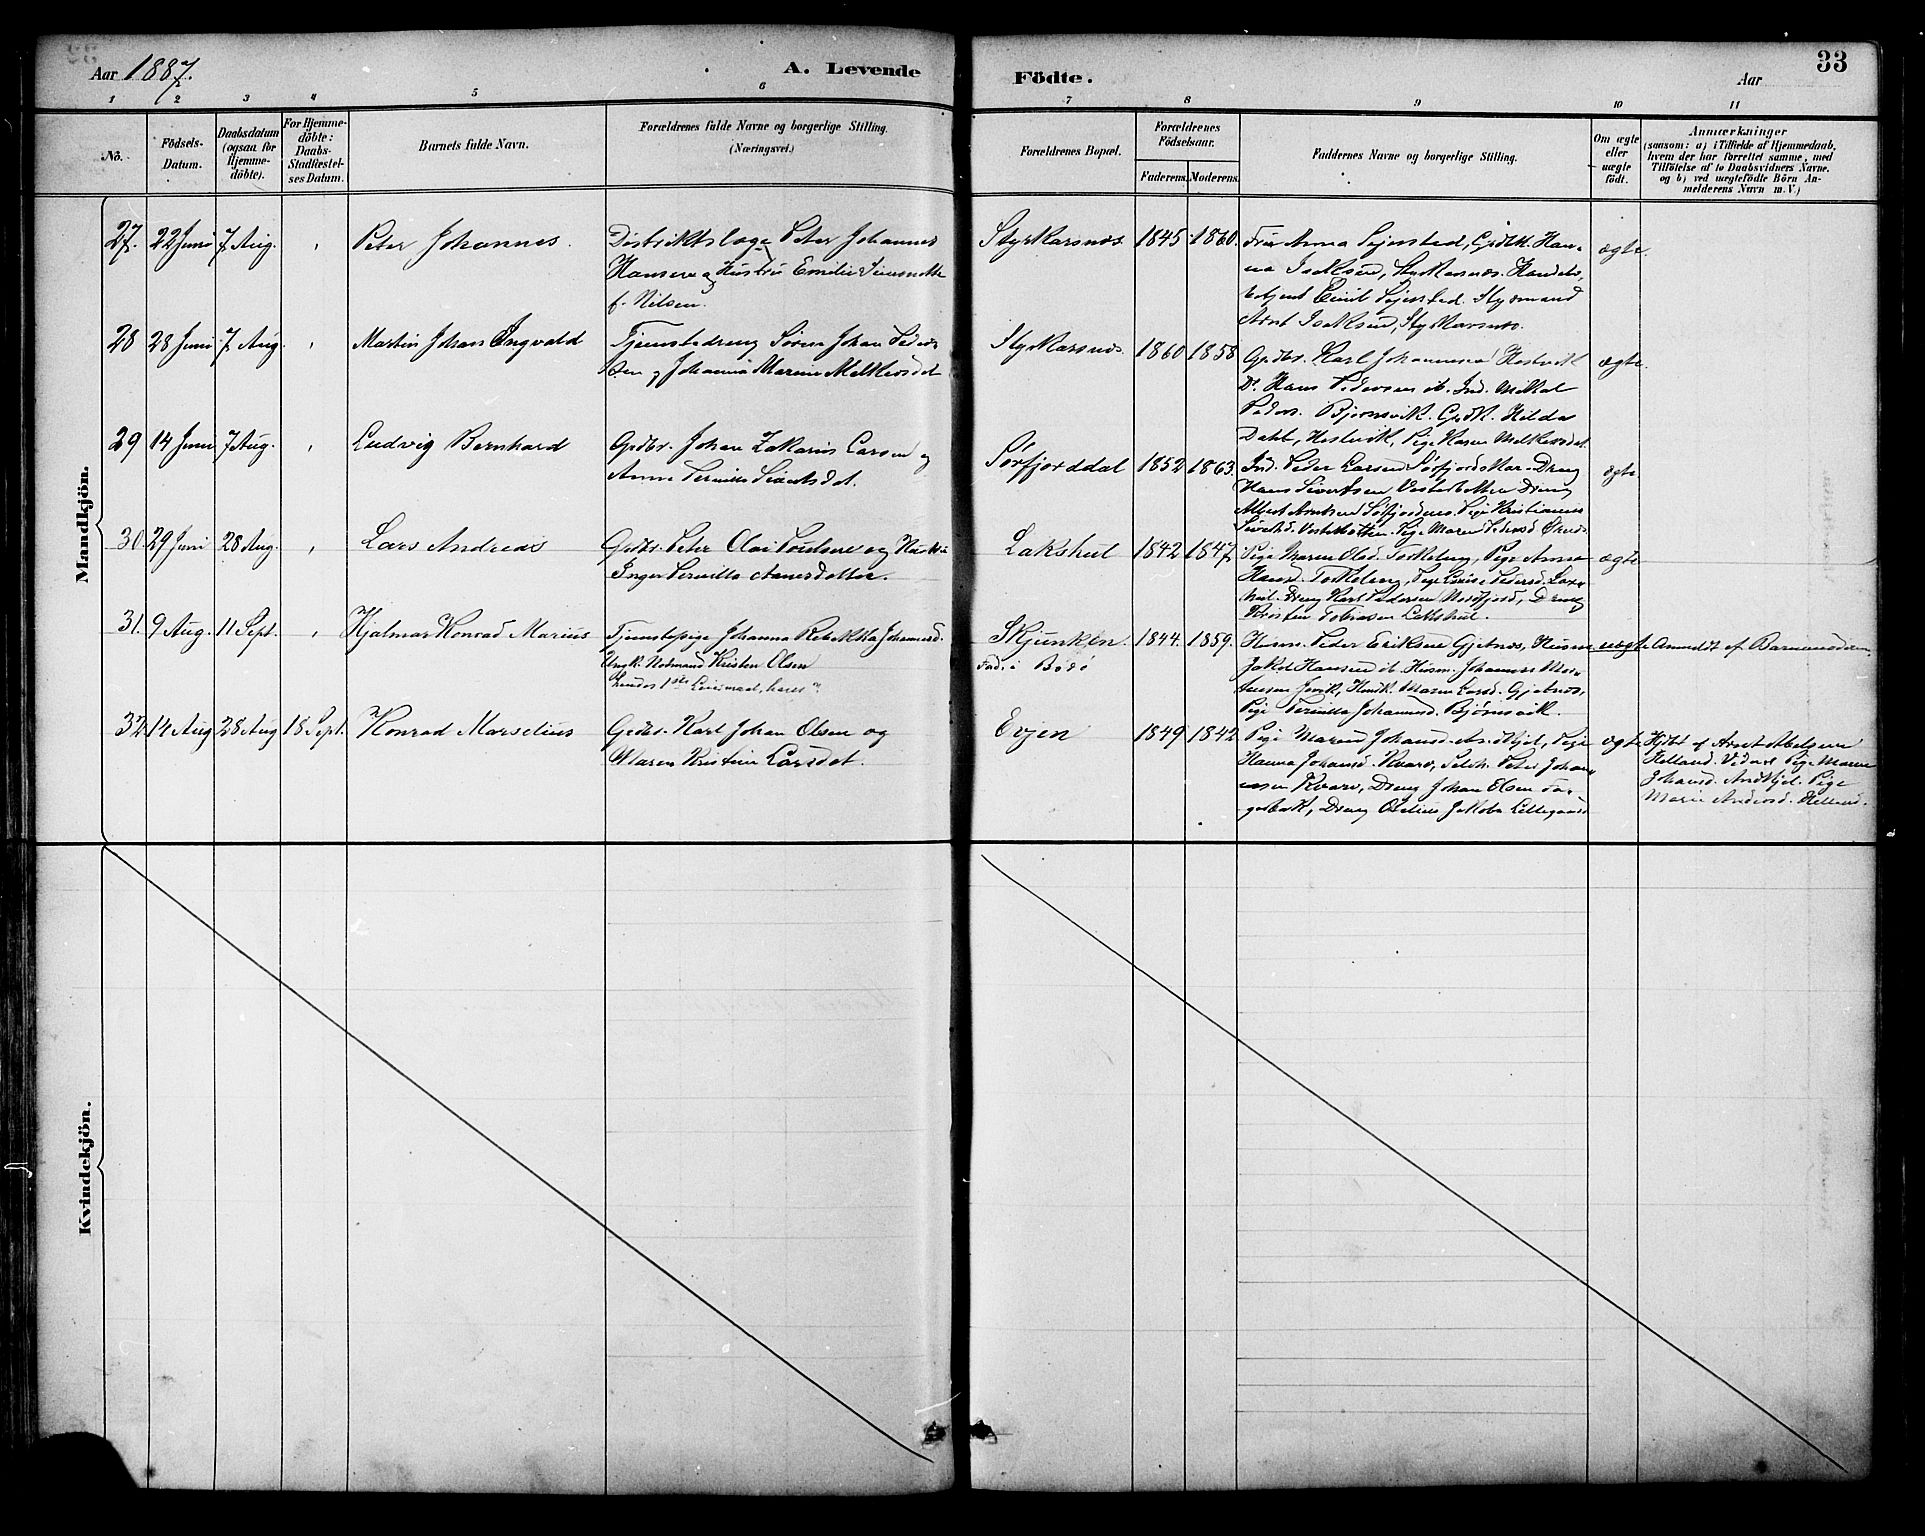 Aar 1887. A. Levende Födte. Aar 33
1 2 3 4 5 6 7 8 9 10 11
No.
Födsels-Datum.
Daabsdatum (ogsaa for Hjemme-döbte).
For Hjemme-döbte: Daabs-Stadfæstel-ses Datum.
Barnets fulde Navn.
Forældrenes fulde Navne og borgerlige Stilling.
(Næringsvei.)
Forældrenes Bopæl.
Forældrenes Födselsaar.
Faderens. Moderens.
Faddernes Navne og borgerlige Stilling.
Om ægte eller uægte födt.
Anmærkninger
(saasom: a) i Tilfælde af Hjemmedaab,
hvem der har forrettet samme, med
Tilföielse af to Daabsvidners Navne.
og b) ved uægtefödte Börn An-
melderens Navn m. V.)
Mandkjön.
27. 22 Juni 7 Aug. Peter Johannes.
Distriktslæge Peter Johannes
Hansen og Hustru Emilie
f. Nilsen.
Styrkarsnæs. 1845 1860.
Frue Anna Sejersted, Gpdtk. Han-
na Isaksen, Styrkarsnæs. Handels-
betjent Emil Sejersted. Styrmand
Arnt Isaksen, Styrkarsnæs.
ægte
28 28 Juni 7 Aug. Martin Johan Ingvald
Tjenestedreng Sören Johan Peder-
sen og Johanna Marine Melkersdat
Styrkarsnæs. 1860 1858
Gpdbr. Karl Johannesen Hestvik
Do. Hans Pedersen ib. Ind. Mikal
Peders. Bjørnsvik. Gpdk. Hilda
Dahl, Hestvik, Pige Karen Melkersdat.
ægte
29 14 Juni 7 Aug. Ludvig Bernhard
Gpdbr. Johan Zakarias Larsen og
Anne Pernille Sivertsdt.
Sørfjorddal 1852 1863.
Ind. Peder Larsen Sørfjord Dreng
Hans Sivertsen Dreng
Albert Arntsen Pige Kristianna
Pige Maren Pedersd.
ægte
30. 29 Juni 28 Aug. Lars Andreas
Gpdbr. Peter Olai Poulsen og Hustru
Inger Pernilla
Lakshul 1842 1847.
Pige Maren Olsd. Pige Anna
Hansd. Pige Pedersd. Lax-
hul. Dreng Karl Pedersen Nordfjord, Dreng
Kristen Tobiasen Lakshul.
ægte
31. 9 Aug. 11 Sept. Hjalmar Konrad Marius
Tjenestepige Johanna Rebekka Johannesd.
Ungk. Kristen Olsen
Hendes 1ste Leiermaal, hans
Skjunken. 1844. 1859.
Fad. i Bodø
Husm. Peder Eriksen Gjetnæs, Husm.
Jakob Hansen ib. Husm. Johannes
Maren Larsd. Gjetnæs,
Pige Pernilla Johannesd. Bjørnsvik.
uægte Anmeldt af Barnemoderen
32 14 Aug 28 Aug 18 Sept. Konrad Marselius
Gpdbr. Karl Johan Olsen og
Maren Kristine Larsdat.
Evjen 1849 1842
Pige Maren Johansd. Pige
Hanna Johansd. Kvarv, Peter Johan-
nesen Kvarv, Dreng Johan Olsen
Dreng Jakobs. Lillegaard
ægte
Hjdbt af Arnt Abelsen
Helland. Vidner Pige Maren
Johansd. Pige
Marie Andersd. Helland.
Kvindekjön.